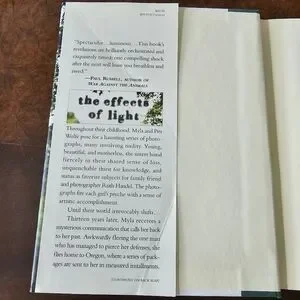 "Spectacular luminous This book's
revelations are brilliantly orchestrated and
exquisitely timed; one compelling shock
after the next will leave you breathless and
—Paul Russell, author of
War Against the Animals
the effects
of light
Throughout their childhood, Myla and Pru
Wolfe pose for a haunting series of photo-
graphs, many involving nudity. Young,
beautiful, and motherless, the sisters hound
fiercely to their shared sense of
unquenchable thirst for knowledge, and
status as favorite subjects for family friend
and photographer Ruth Handel. The photo-
graphs fire each girl's psyche with a sense of
artistic accomplishment.
Until their world irrevocably shifts.
Thirteen years later, Myla receives a
mysterious communication that calls her back
to her past. Awkwardly fleeing the one man
who has managed to pierce her defenses, she
flies home to Oregon, where a series of pack-
ages are sent to her in measured installments.
(continued on back flap)